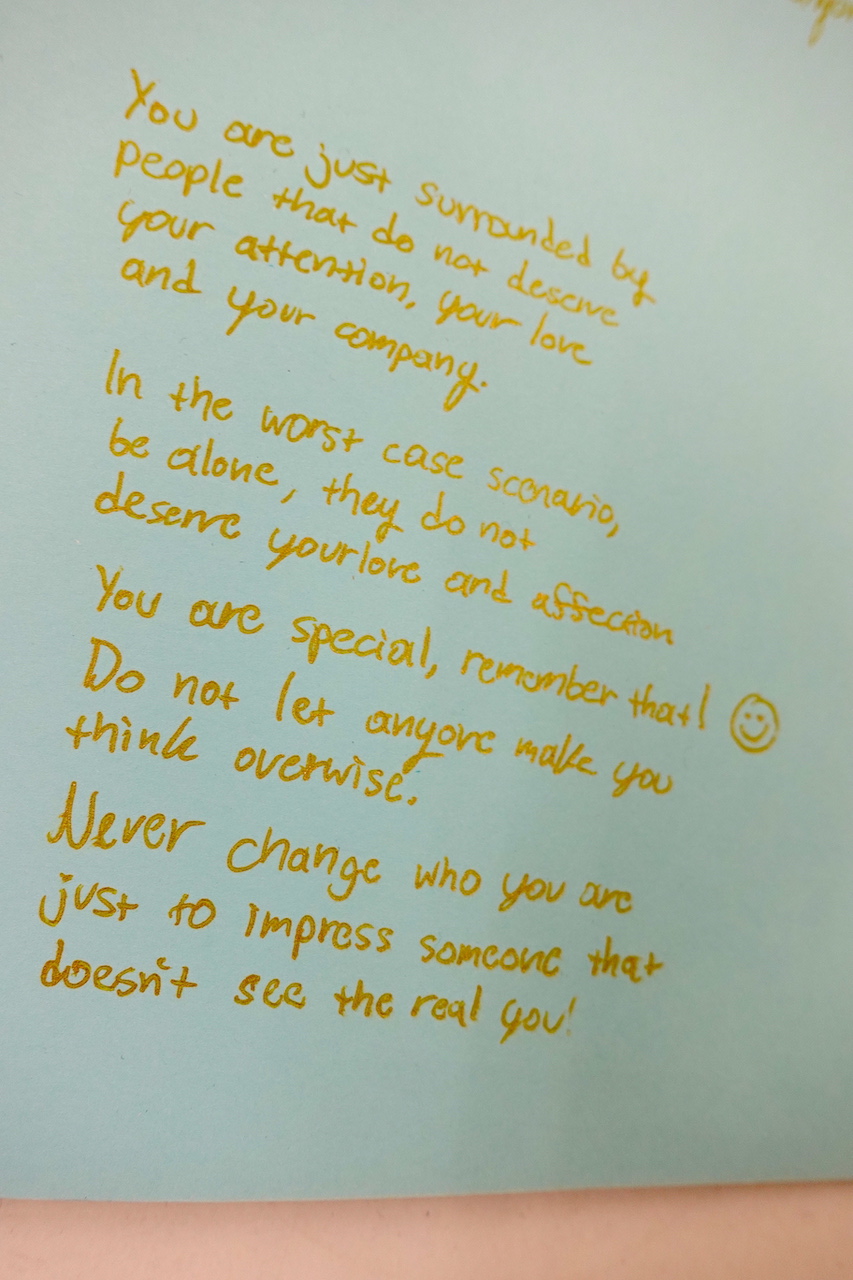 You are just surrounded by
people that do not deserve
your attention, your love
and your company.
In the worst case scenario,
be alone, they do not
deserve your love and affection
You are special, remember that! ☺
Do not let anyone make you
think overwise.
Never change who you are
just to impress someone that
doesn't see the real you!